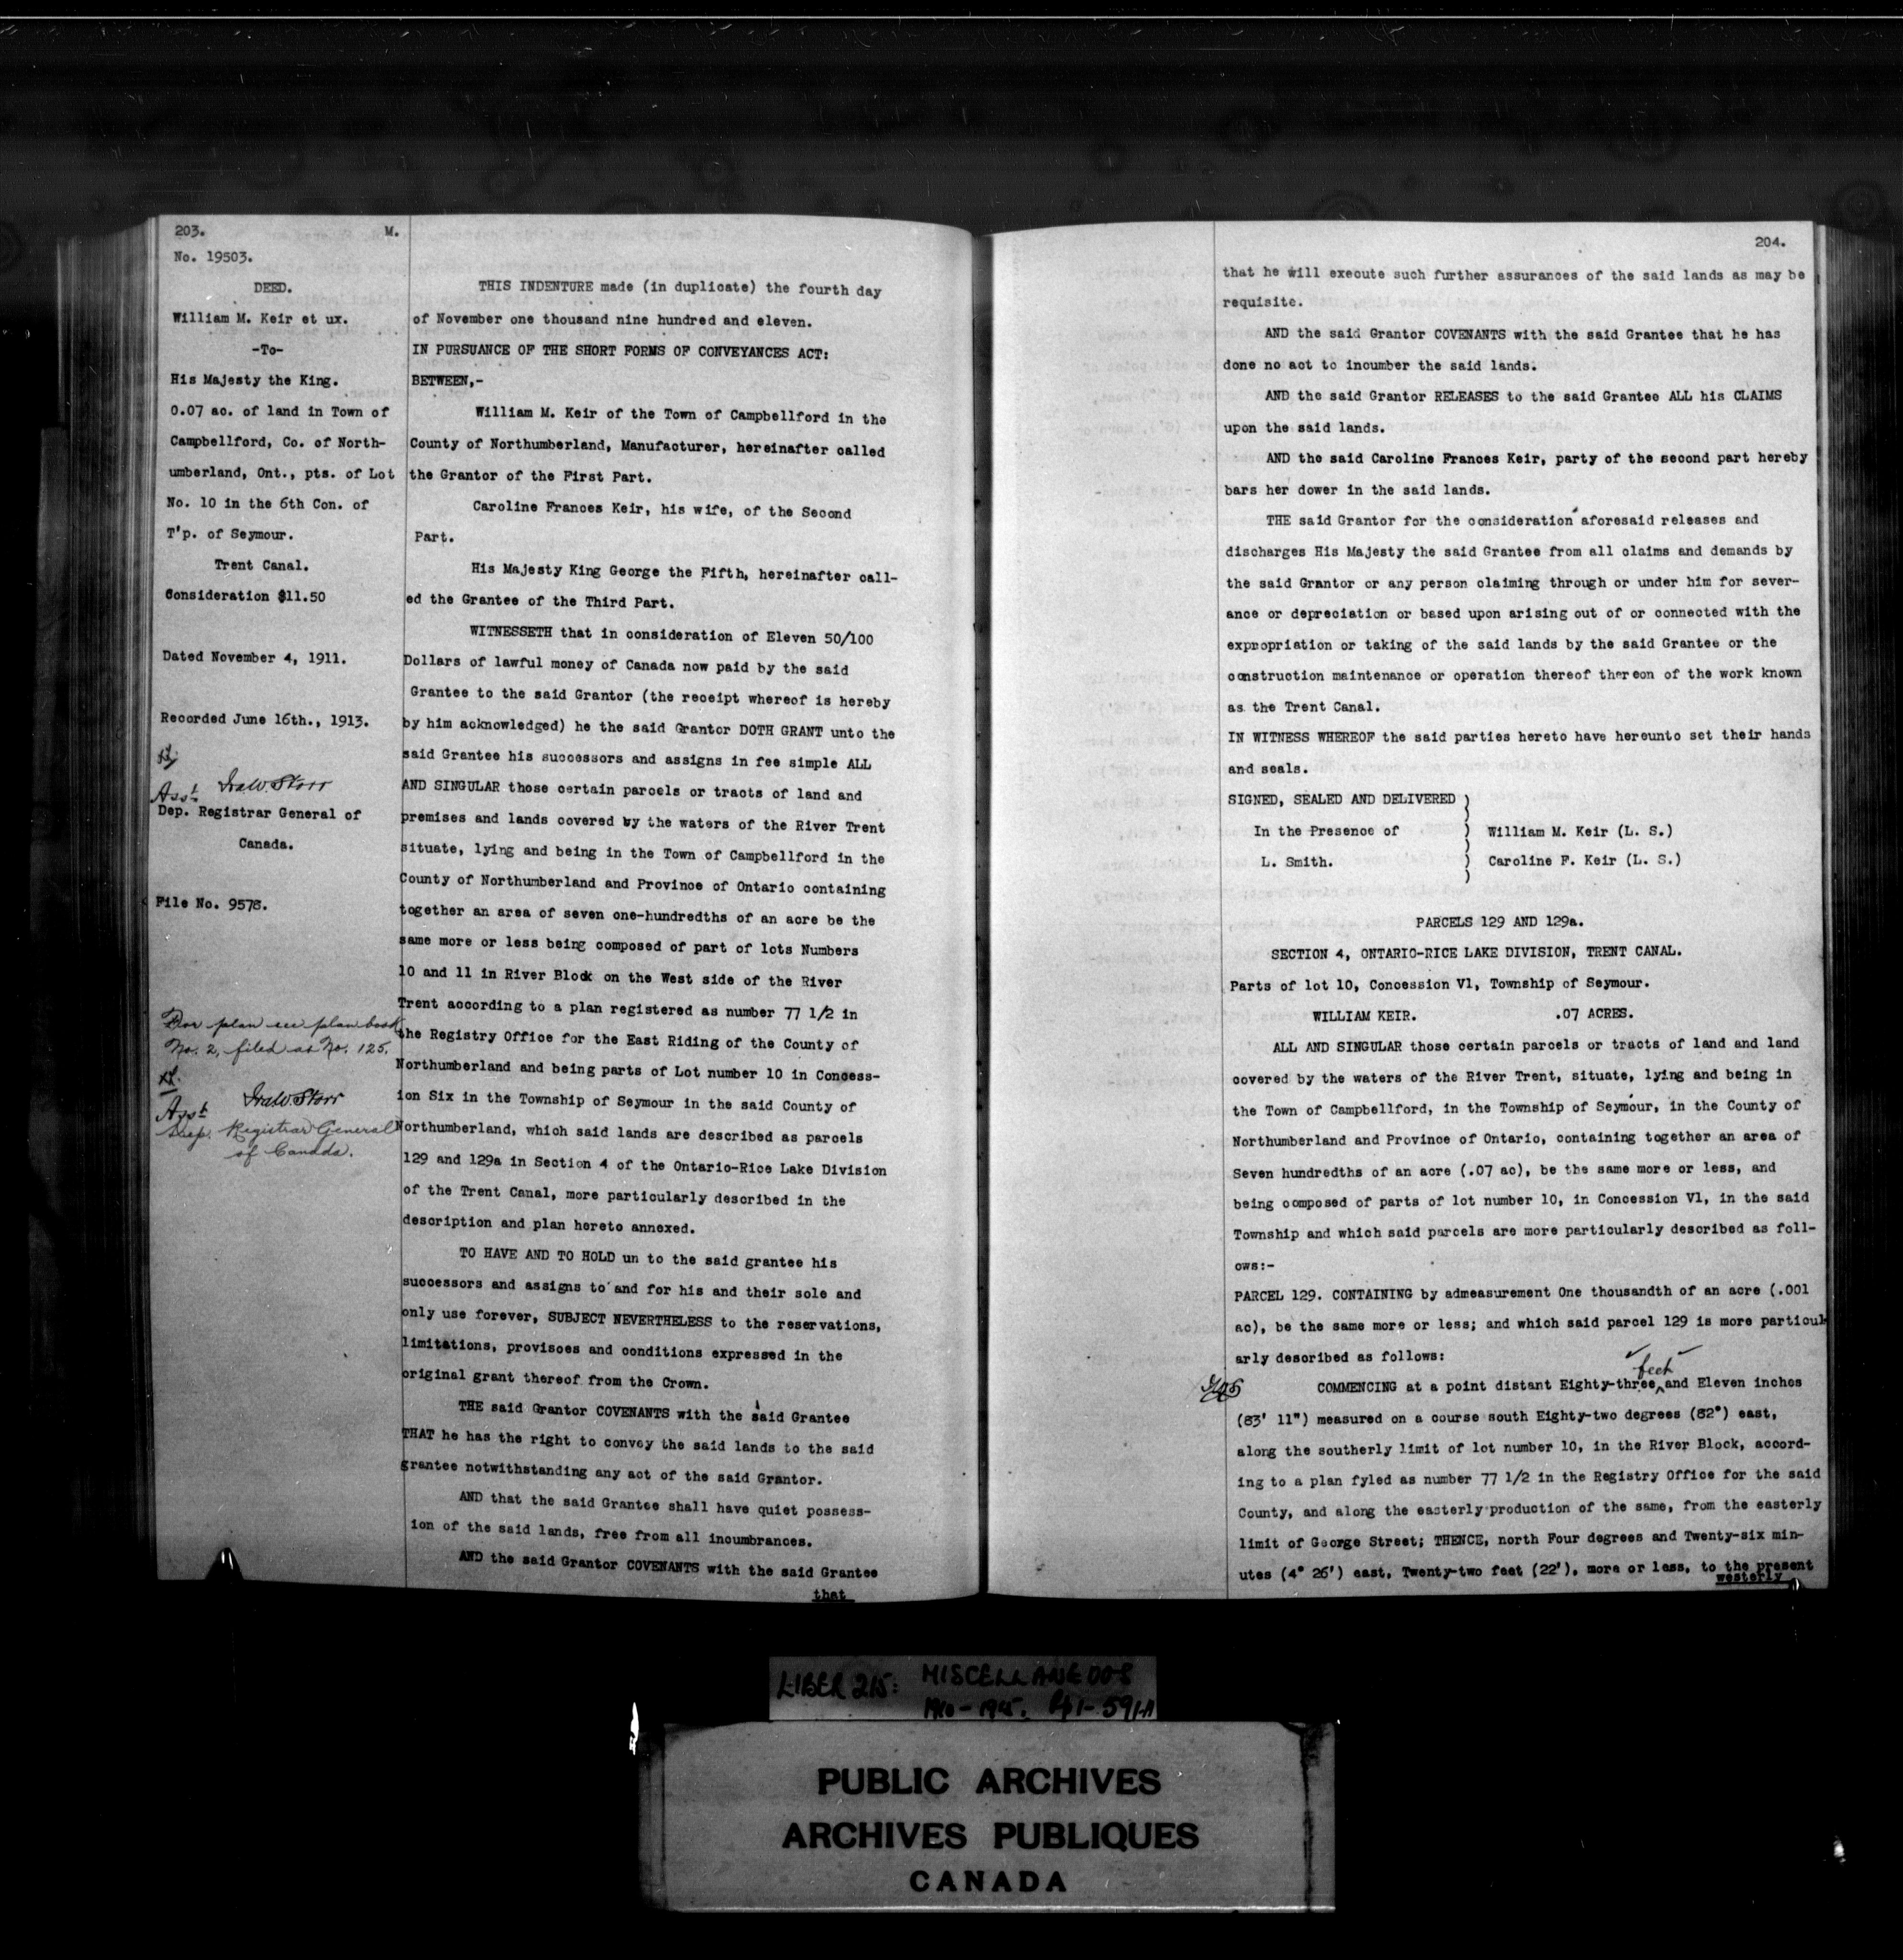 203. M.
No. 19503.
DEED.
William M. Keir et ux.
-To-
His Majesty the King.
0.07 ac. of land in Town of
Campbellford, Co. of North-
umberland, Ont., pts. of Lot
No. 10 in the 6th Con. of
T'p. of Seymour.
Trent Canal.
Consideration $11.50
Dated November 4, 1911.
Recorded June 16th., 1913.
Ira W. Storr
Ass't
Dep. Registrar General of
Canada.
File No. 9578.
For plan see plan book
No. 2, filed as No. 125.
Ira W. Storr
Ass't
Dep. Registrar General
of Canada.
THIS INDENTURE made (in duplicate) the fourth day
of November one thousand nine hundred and eleven.
IN PURSUANCE OF THE SHORT FORMS OF CONVEYANCES ACT:
BETWEEN,-
William M. Keir of the Town of Campbellford in the
County of Northumberland, Manufacturer, hereinafter called
the Grantor of the First Part.
Caroline Frances Keir, his wife, of the Second
Part.
His Majesty King George the Fifth, hereinafter call-
ed the Grantee of the Third Part.
WITNESSETH that in consideration of Eleven 50/100
Dollars of lawful money of Canada now paid by the said
Grantee to the said Grantor (the receipt whereof is hereby
by him acknowledged) he the said Grantor DOTH GRANT unto the
said Grantee his successors and assigns in fee simple ALL
AND SINGULAR those certain parcels or tracts of land and
premises and lands covered by the waters of the River Trent
situate, lying and being in the Town of Campbellford in the
County of Northumberland and Province of Ontario containing
together an area of seven one-hundredths of an acre be the
same more or less being composed of part of lots Numbers
10 and 11 in River Block on the West side of the River
Trent according to a plan registered as number 77 1/2 in
the Registry Office for the East Riding of the County of
Northumberland and being parts of Lot number 10 in Concess-
ion Six in the Township of Seymour in the said County of
Northumberland, which said lands are described as parcels
129 and 129a in Section 4 of the Ontario-Rice Lake Division
of the Trent Canal, more particularly described in the
description and plan hereto annexed.
TO HAVE AND TO HOLD un to the said grantee his
successors and assigns to and for his and their sole and
only use forever, SUBJECT NEVERTHELESS to the reservations,
limitations, provisoes and conditions expressed in the
original grant thereof from the Crown.
THE said Grantor COVENANTS with the said Grantee
THAT he has the right to convey the said lands to the said
grantee notwithstanding any act of the said Grantor.
AND that the said Grantee shall have quiet possess-
ion of the said lands, free from all incumbrances.
AND the said Grantor COVENANTS with the said Grantee
that
204.
that he will execute such further assurances of the said lands as may be
requisite.
AND the said Grantor COVENANTS with the said Grantee that he has
done no act to incumber the said lands.
AND the said Grantor RELEASES to the said Grantee ALL his CLAIMS
upon the said lands.
AND the said Caroline Frances Keir, party of the second part hereby
bars her dower in the said lands.
THE said Grantor for the consideration aforesaid releases and
discharges His Majesty the said Grantee from all claims and demands by
the said Grantor or any person claiming through or under him for sever-
ance or depreciation or based upon arising out of or connected with the
expropriation or taking of the said lands by the said Grantee or the
construction maintenance or operation thereof thereon of the work known
as the Trent Canal.
IN WITNESS WHEREOF the said parties hereto have hereunto set their hands
and seals.
SIGNED, SEALED AND DELIVERED )
In the Presence of ) William M. Keir (L. S.)
L. Smith. ) Caroline F. Keir (L. S.)
PARCELS 129 AND 129a.
SECTION 4, ONTARIO-RICE LAKE DIVISION, TRENT CANAL.
Parts of lot 10, Concession V1, Township of Seymour.
WILLIAM KEIR. .07 ACRES.
ALL AND SINGULAR those certain parcels or tracts of land and land
covered by the waters of the River Trent, situate, lying and being in
the Town of Campbellford, in the Township of Seymour, in the County of
Northumberland and Province of Ontario, containing together an area of
Seven hundredths of an acre (.07 ac), be the same more or less, and
being composed of parts of lot number 10, in Concession V1, in the said
Township and which said parcels are more particularly described as foll-
ows:-
PARCEL 129. CONTAINING by admeasurement One thousandth of an acre (.001
ac), be the same more or less; and which said parcel 129 is more particul
arly described as follows:
feet
COMMENCING at a point distant Eighty-three and Eleven inches
(83' 11") measured on a course south Eighty-two degrees (82°) east,
along the southerly limit of lot number 10, in the River Block, accord-
ing to a plan fyled as number 77 1/2 in the Registry Office for the said
County, and along the easterly production of the same, from the easterly
limit of George Street; THENCE, north Four degrees and Twenty-six min-
utes (4° 26') east, Twenty-two feet (22'), more or less, to the present
westerly
LIBER 215: MISCELLANEOUS
PUBLIC ARCHIVES
ARCHIVES PUBLIQUES
CANADA